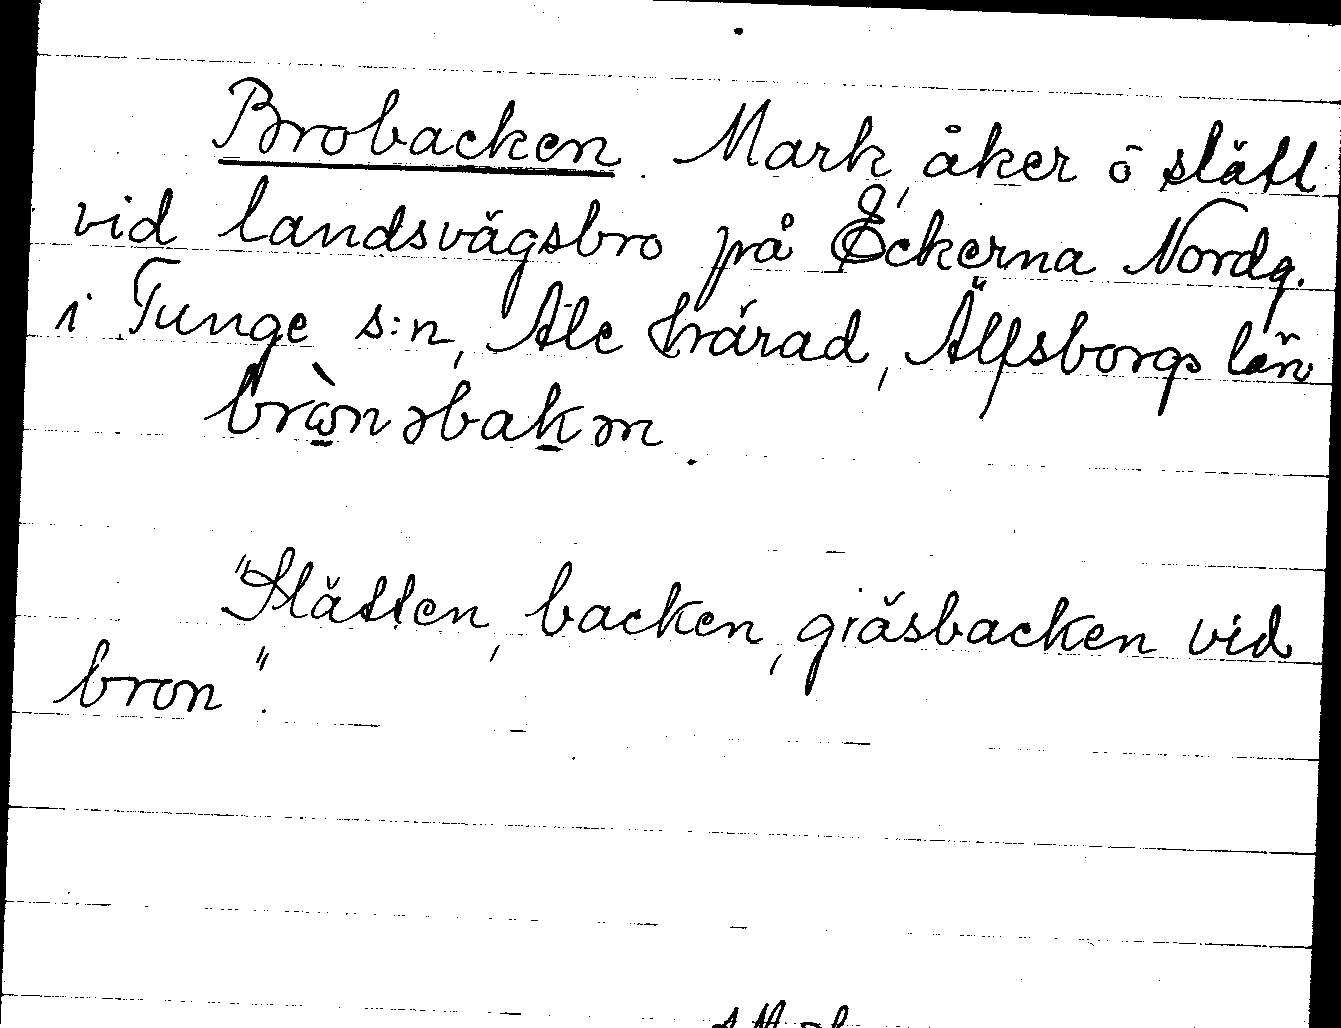 Brobacken. Mark, åker o slätt
vid landsvägsbro på Eckerna Nordg.
i Tunge s:n, Ale härad, Älfsborgs län
brɷ̀nəbakən.
"Slätten, backen, gräsbacken vid
bron".